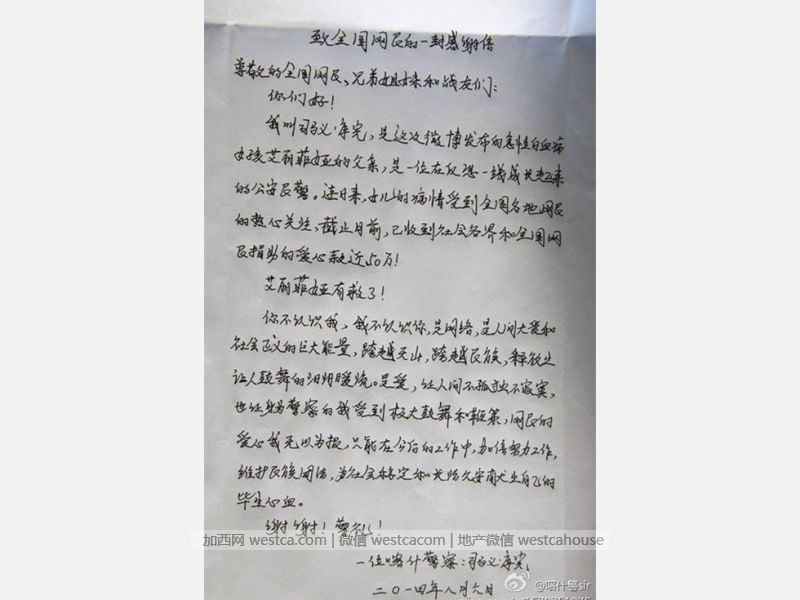 致全国网民的一封感谢信
尊敬的全国网民、兄弟姐妹和战友们：
你们好！
我叫司马义·库完，是这次微博发布的急性白血病
女孩艾丽菲娅的父亲，是一位在反恐一线成长起来
的公安民警。连日来，女儿的病情受到全国各地网民
的热心关注，截止目前，已收到社会各界和全国网
民捐助的爱心款近50万！
艾丽菲娅有救了！
你不认识我，我不认识你，是网络，是人间大爱和
社会正义的巨大能量，跨越天山，跨越民族，释放出
让人鼓舞的汩汩暖流。是爱，让人间不孤独不寂寞，
也让身为警察的我受到极大鼓舞和鞭策，网民的
爱心我无以为报，只能在今后的工作中，加倍努力工作，
维护民族团结，为社会稳定和长治久安贡献出自己的
毕生心血。
谢谢！警礼！
一位喀什警察：司马义·库完
二〇一四年八月六日
加西网 westca.com | 微信 westcacom | 地产微信 westcahouse
@喀什粤sir